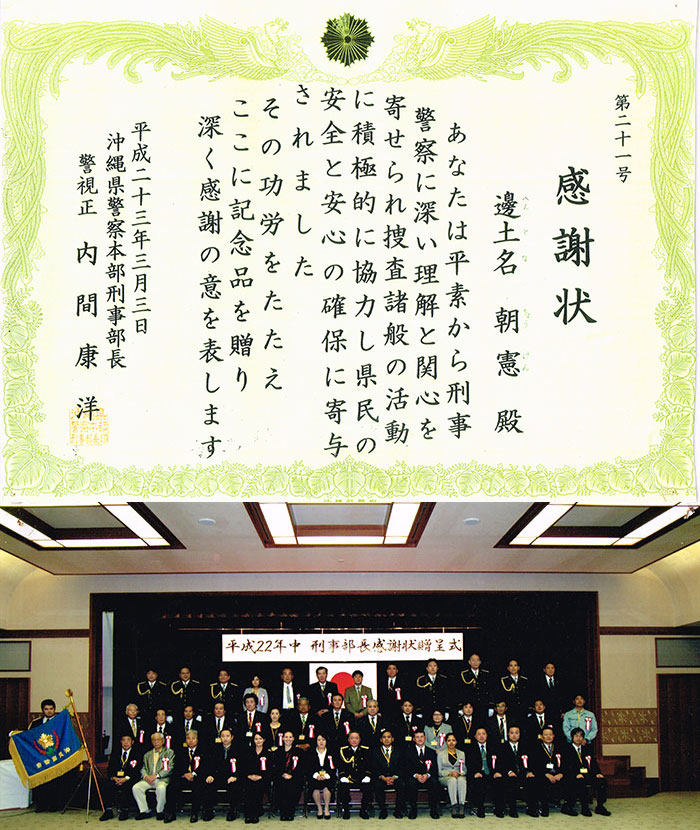 第二十一号
感謝状
邊土名 朝憲 殿
へんとな ちょうけん
あなたは平素から刑事
警察に深い理解と関心を
寄せられ捜査諸般の活動
に積極的に協力し県民の
安全と安心の確保に寄与
されました
その功労をたたえ
ここに記念品を贈り
深く感謝の意を表します
平成二十三年三月三日
沖縄県警察本部刑事部長
警視正 内間康洋
平成22年中 刑事部長感謝状贈呈式